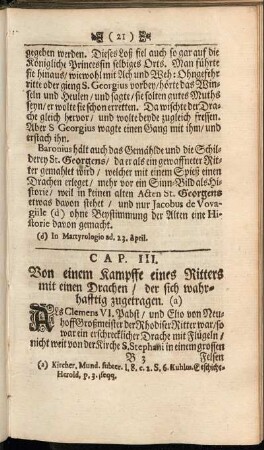 ( 21 )
gegeben werden. Dieses Loß fiel auch so gar auf die
Königliche Princeßin selbiges Orts. Man führte
sie hinaus/ wiewohl mit Ach und Weh: Ohngefehr
ritte oder gieng S. Georgius vorbey/ hörte das Win-
seln und Heulen/ und sagte/ sie solten gutes Muths
seyn/ er wolte sie schon erretten. Da wischte der Dra-
che gleich hervor/ und wolte beyde zugleich fressen.
Aber S Georgius wagte einen Gang mit ihm/ und
erstach ihn.
Baronius hält auch das Gemählde und die Schil-
derey St. Georgens/ da er als ein gewaffneter Rit-
ter gemahlet wird/ welcher mit einem Spieß einen
Drachen erleget/ mehr vor ein Sinn-Bild als Hi-
storie/ weil in keinen alten Acten St. Georgens
etwas davon stehet/ und nur Jacobus de Vova-
giüle (d) ohne Beystimmung der Alten eine Hi-
storie davon gemacht.
(d) In Martyrologio ad. 23. April.
CAP. III.
Von einem Kampffe eines Ritters
mit einen Drachen/ der sich wahr-
hafftig zugetragen. (a)
Als Clemens VI. Pabst/ und Elio von Neu-
hoff Großmeister der Rhodiser Ritter war/ so
war ein erschrecklicher Drache mit Flügeln/
nicht weit von der Kirche S. Stephani in einem grossen
B 3 Felsen
(a) Kircher, Mund. subter. l. 8. c. 2. S. 6. Kuhlm. Geschicht-
Herold, p. 3. seqq.